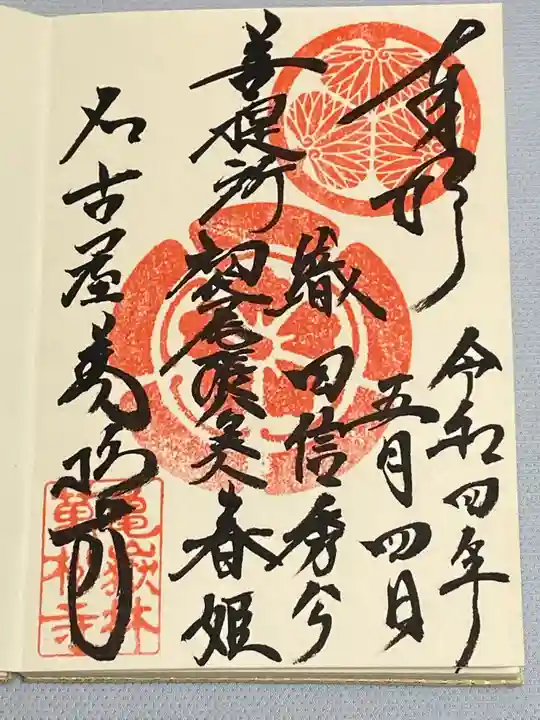 奉拝
令和四年
五月四日
織田信秀公
菩提所
春姫
名古屋萬松寺
亀嶽林
萬松寺